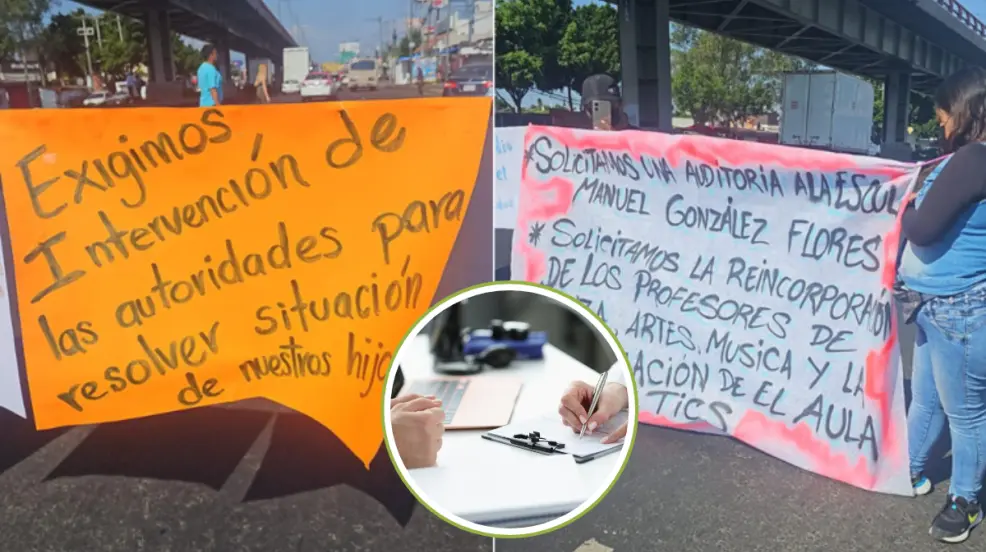 Exigimos
Intervención de
las autoridades para
resolver situación
de nuestros hijo
*SOLICITAMOS UNA AUDITORIA A LA ESCUEL
MANUEL GONZÁLEZ FLORES
* SOLICITAMOS LA REINCORPORACIÓN
DE LOS PROFESORES DE
ARTES, MUSICA Y LA
DE EL AULA
TICS